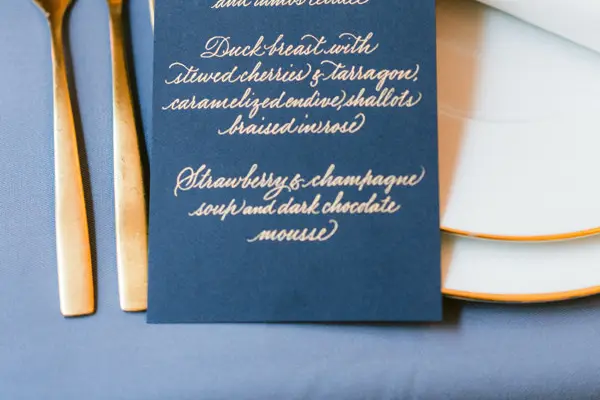 Duck breast with
stewed cherries & tarragon,
caramelized endive, shallots
braised in rosé
Strawberry & champagne
soup and dark chocolate
mousse